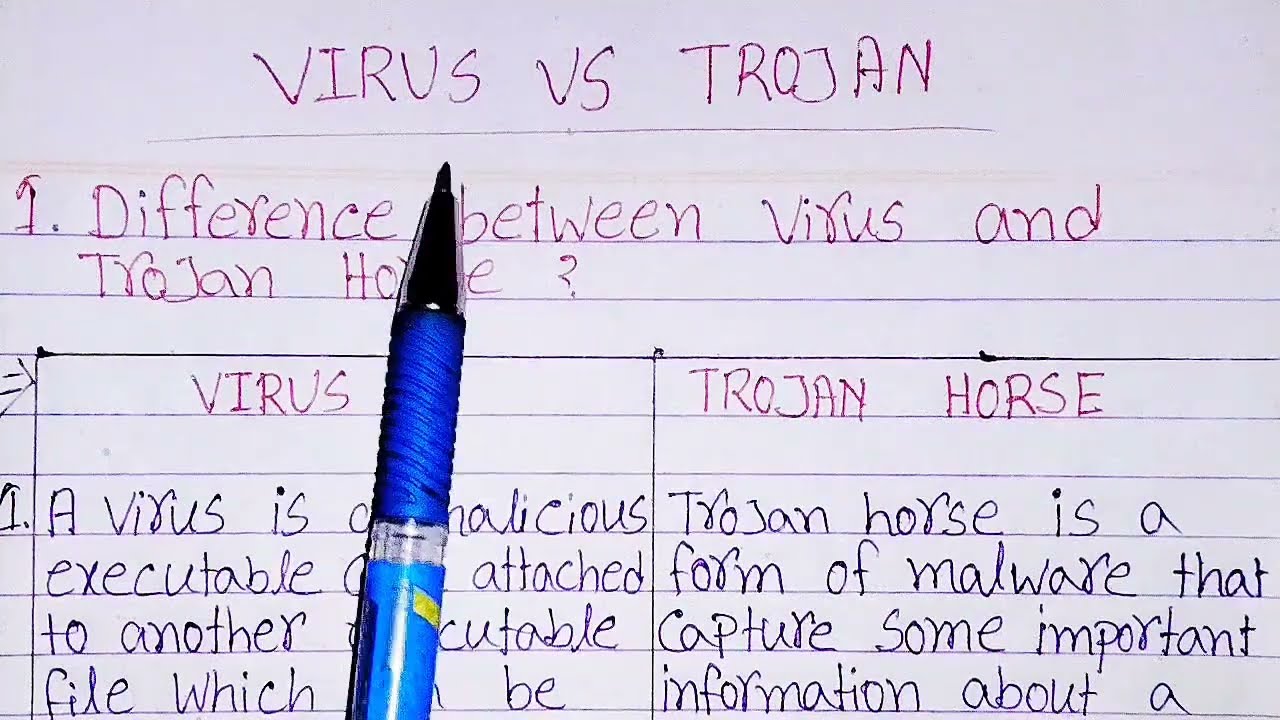 VIRUS VS TROJAN
1. Difference between Virus and
Trojan Horse ?
VIRUS
TROJAN HORSE
1. A Virus is a malicious
executable attached
to another executable
file which be
Trojan horse is a
form of malware that
capture some important
information about a